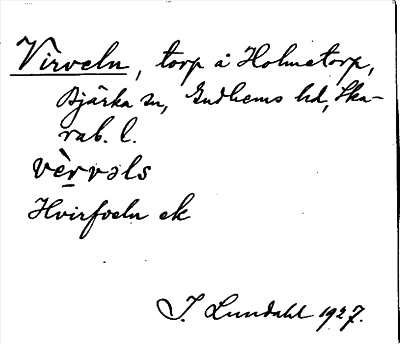 Virveln, torp å Holmatorp,
Bjärka sn, Gudhems hd, Ska-
rab. l.
vèrvəls
Hvirfveln ek
J. Lundahl 1927.